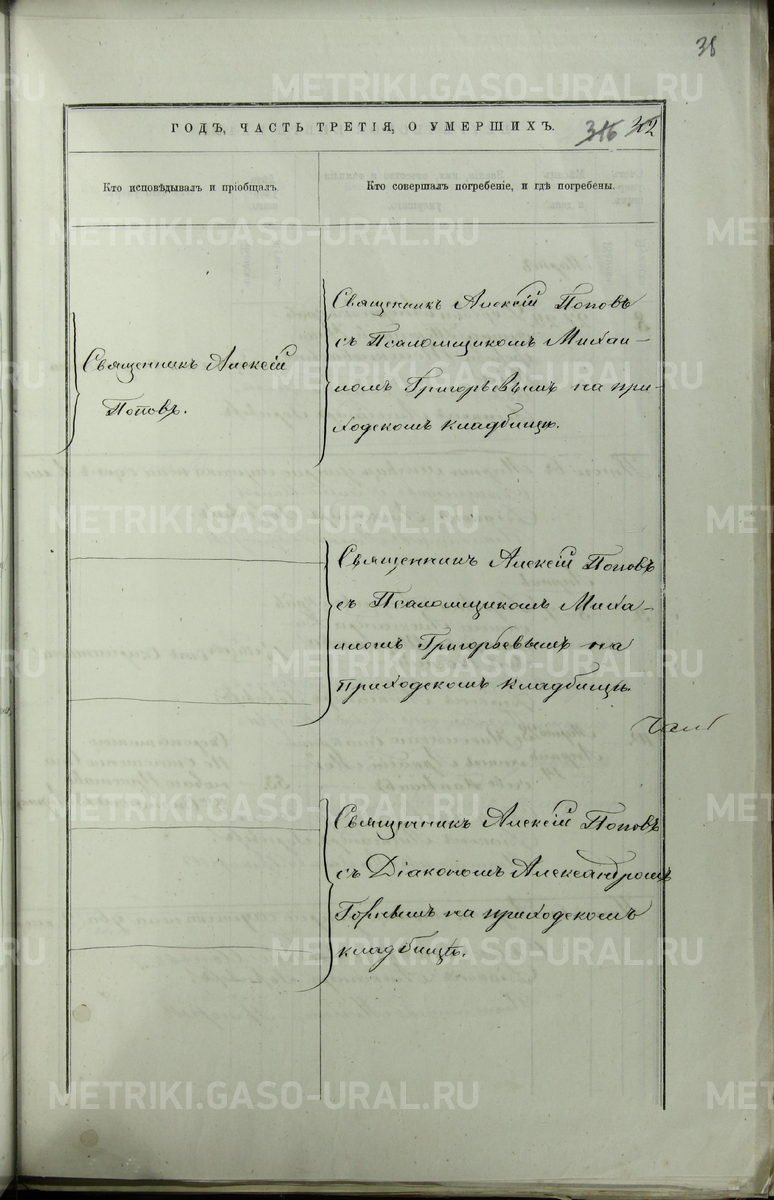 38
ГОДЪ, ЧАСТЬ ТРЕТІЯ, О УМЕРШИХЪ.
316 312
Кто исповѣдывалъ и пріобщалъ.
Кто совершалъ погребеніе, и гдѣ погребены.
Священникъ Алексій
Поповъ.
Священникъ Алексій Поповъ
съ Псаломщикомъ Михаи–
ломъ Григорьевымъ на при-
ходскомъ кладбищѣ.
Священникъ Алексій Поповъ
съ Псаломщикомъ Миха–
иломъ Григорьевымъ на
приходскомъ кладбищѣ.
Священникъ Алексій Поповъ
съ Діакономъ Александромъ
на приходскомъ
кладбищѣ.
METRIKI.GASO-URAL.RU